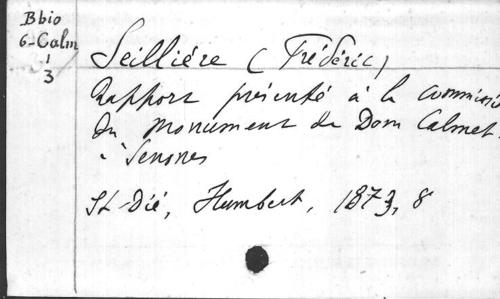 Bbio
6-Calm
1
3
Seillière (Frédéric)
Rapport présenté à la commissio
du monument de Dom Calmet.
à Senones
St-Dié, Humbert, 1873, 8